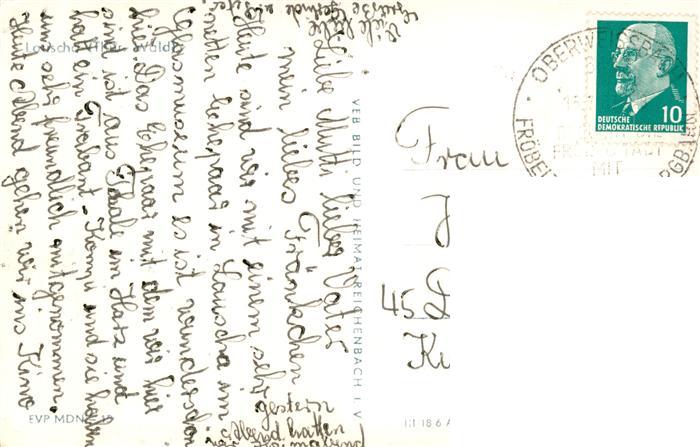 Lauscha
Liebe Mutti lieber Vater
mein liebes Fränkchen
Heute sind wir mit einem sehr
netten Ehepaar in Lauscha im
Glasmuseum es ist wunderschön
hier. Das Ehepaar mit dem wir hier
sind ist aus Thale im Harz und
hat ein Trabant-Kombi und sie haben
uns sehr freundlich mitgenommen.
Heute Abend gehen wir ins Kino
gestern
Abend hatten
wir
Viele liebe
Grüße
VEB BILD UND HEIMAT REICHENBACH I. V.
EVP MDN
III 18 6 A
OBERWEISSBACH
MIT
DEUTSCHE
DEMOKRATISCHE REPUBLIK
10
Frau
45 D